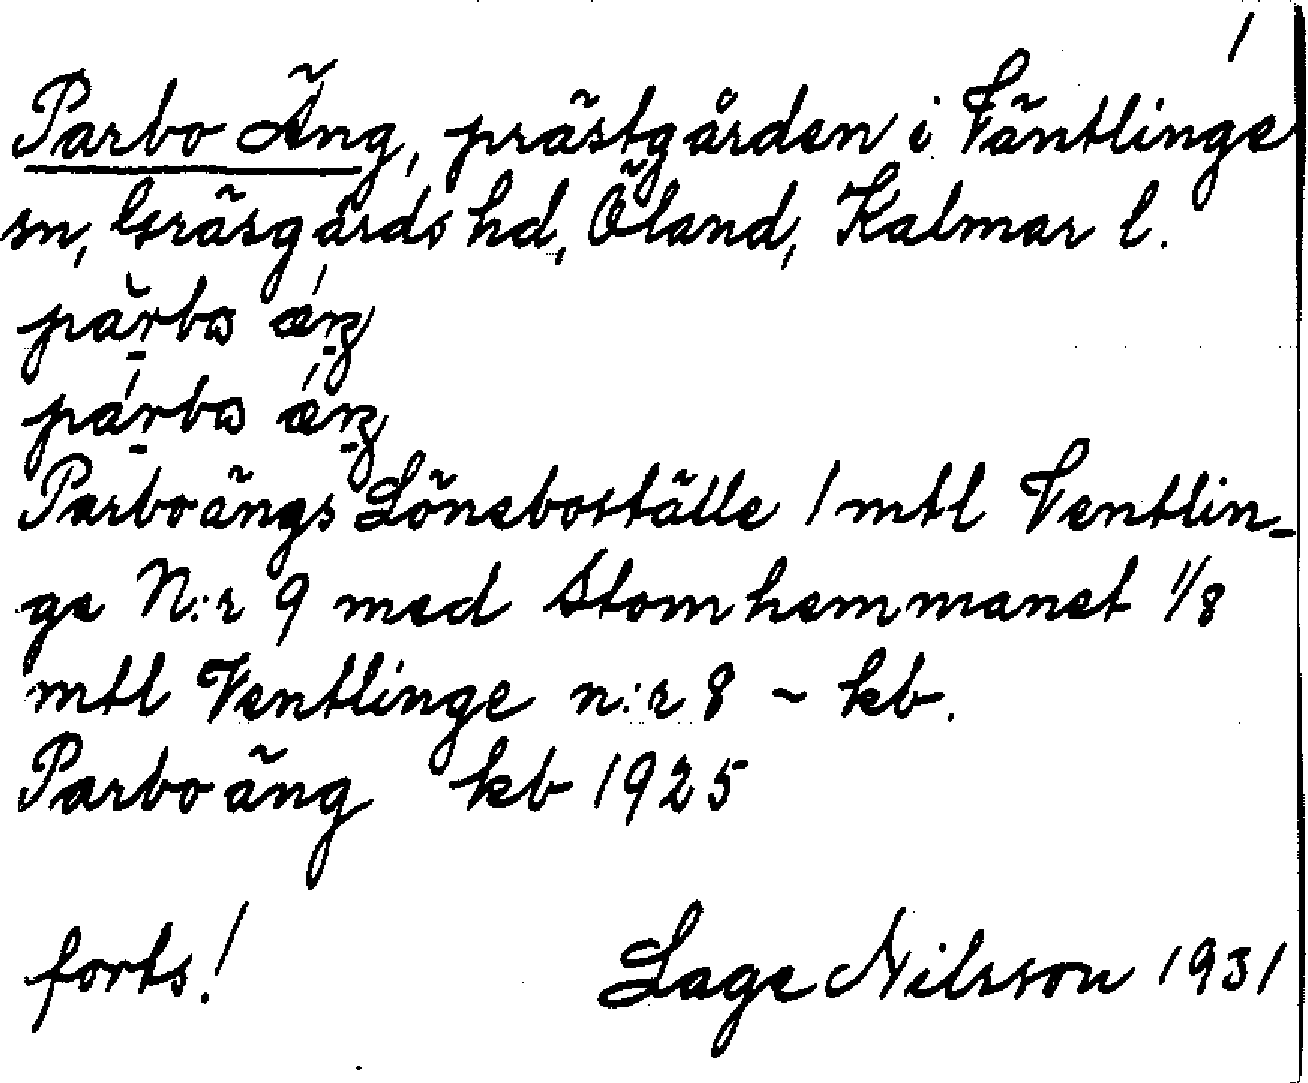 1
Parbo Äng, prästgården i Väntlinge
sn, Gräsgårds hd, Öland, Kalmar l.
Parboängs Löneboställe 1 mtl Ventlin-
ge N:r 9 med Stomhemmanet 1/8
mtl Ventlinge n:r 8 ~ kb.
Parboäng kb 1925
forts!
Lage Nilsson 1931